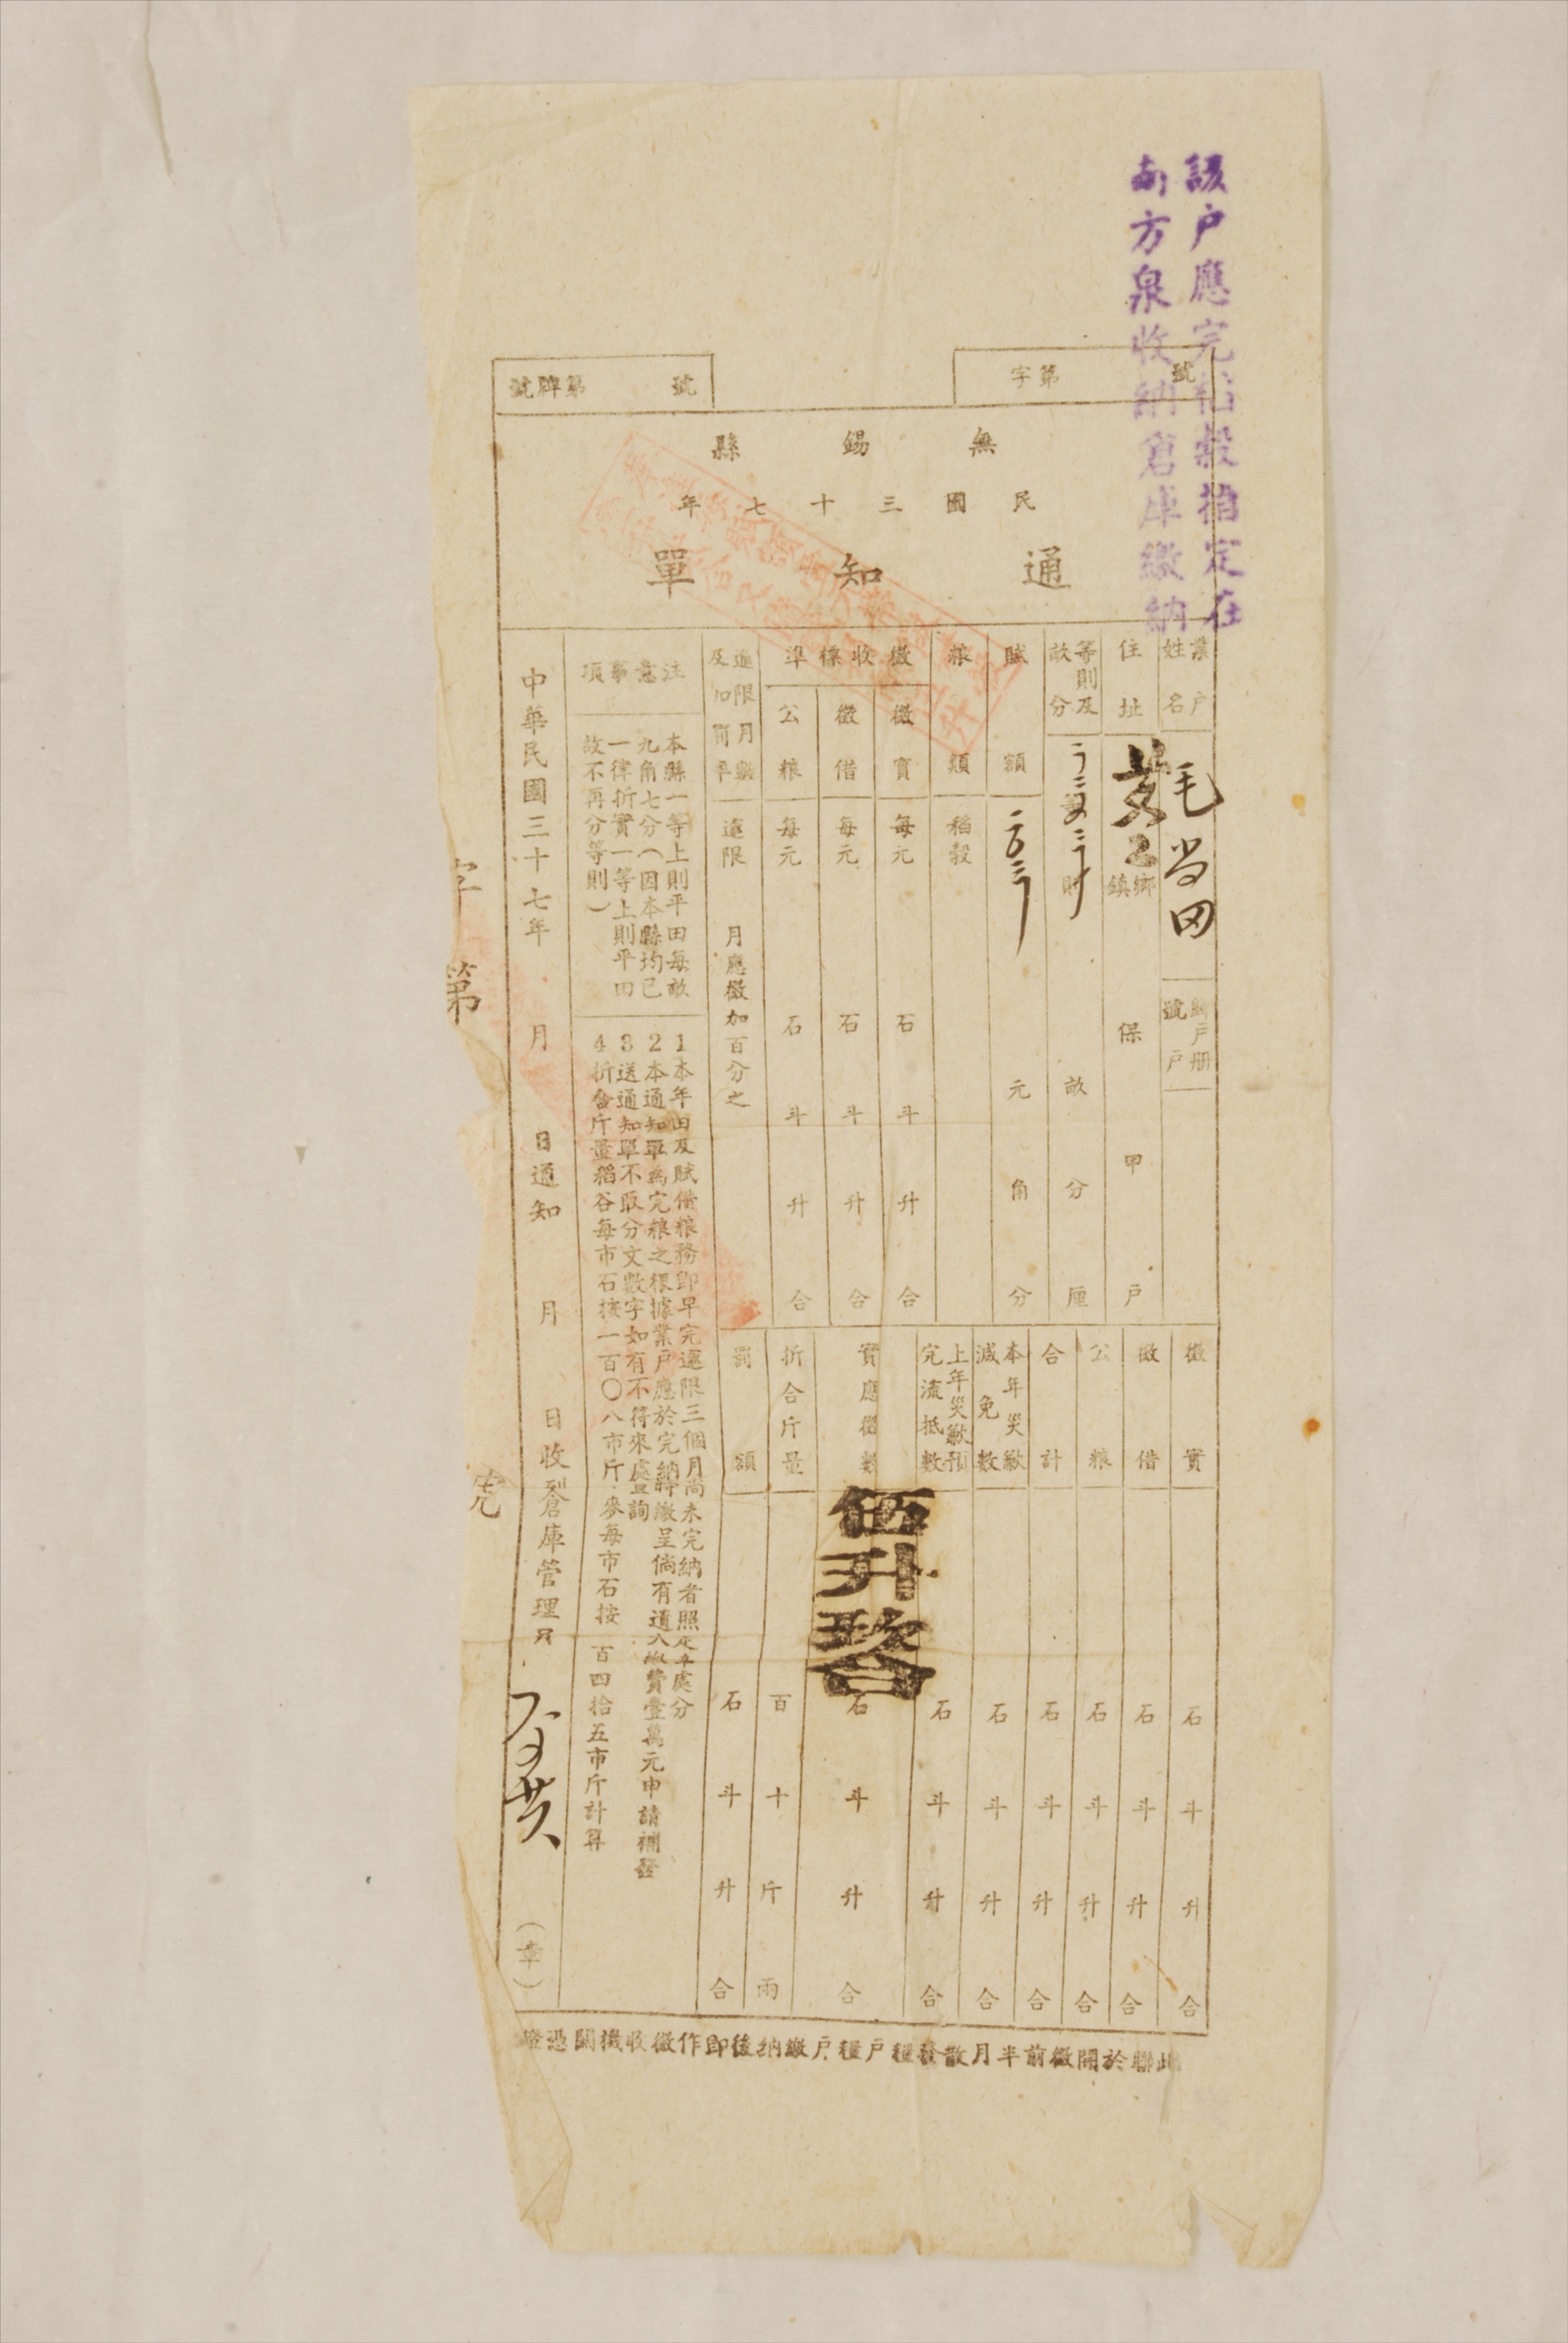 該户應完稻穀指定在
南方泉收納倉庫繳納
字第　號
號牌第　號
無錫縣
民國三十七年
通知單
業户姓名
毛
納户册號　户
住址
鄉鎮　保　甲　户
等則及畝分
畝　分　厘
賦額
元　角　分
粮類
稻穀
徵收標準
徵實　每元　石　斗　升　合
徵借　每元　石　斗　升　合
公粮　每元　石　斗　升　合
逾限月數及加罰率
逾限　月應徵加百分之
徵實　石　斗　升　合
徵借　石　斗　升　合
公粮　石　斗　升　合
合計　石　斗　升　合
本年災歉減免數　石　斗　升　合
上年災歉預完流抵數　石　斗　升　合
實應徵數　伍升玖合　石　斗　升　合
折合斤量　百　十　斤　兩
罰額　石　斗　升　合
注意事項
本縣一等上則平田每畝
九角七分（因本縣均已
一律折實一等上則平田
故不再分等則）
1本年田及賦借粮務卽早完逾限三個月尚未完納者照　處分
2本通知單爲完粮之根據業户應於完納時繳呈倘有遺　費壹萬元申請補發
3送通知單不取分文數字如有不符來處查詢
4折合斤量稻谷每市石按一百〇八市斤麥每市石按一百四拾五市斤計算
中華民國三十七年　月　日通知　月　日收到倉庫管理員　（章）
字第　號
此聯於開徵前半月散發糧户糧户繳納後卽作徵收機關憑證